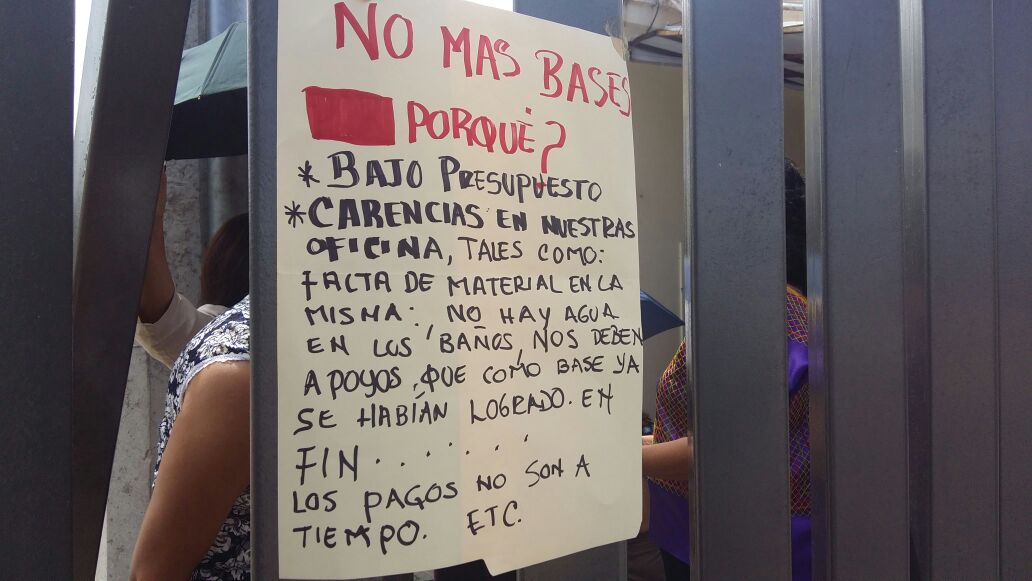 NO MAS BASES
PORQUÉ?
* BAJO PRESUPUESTO
* CARENCIAS EN NUESTRAS
OFICINA, TALES COMO:
FACTA DE MATERIAL EN LA
MISMA: NO HAY AGUA
EN LOS BAÑOS, NOS DEBEN
APOYOS, QUE COMO BASE YA
SE HABÍAN LOGRADO. EN
FIN.......
LOS PAGOS NO SON A
TIEMPO. ETC.